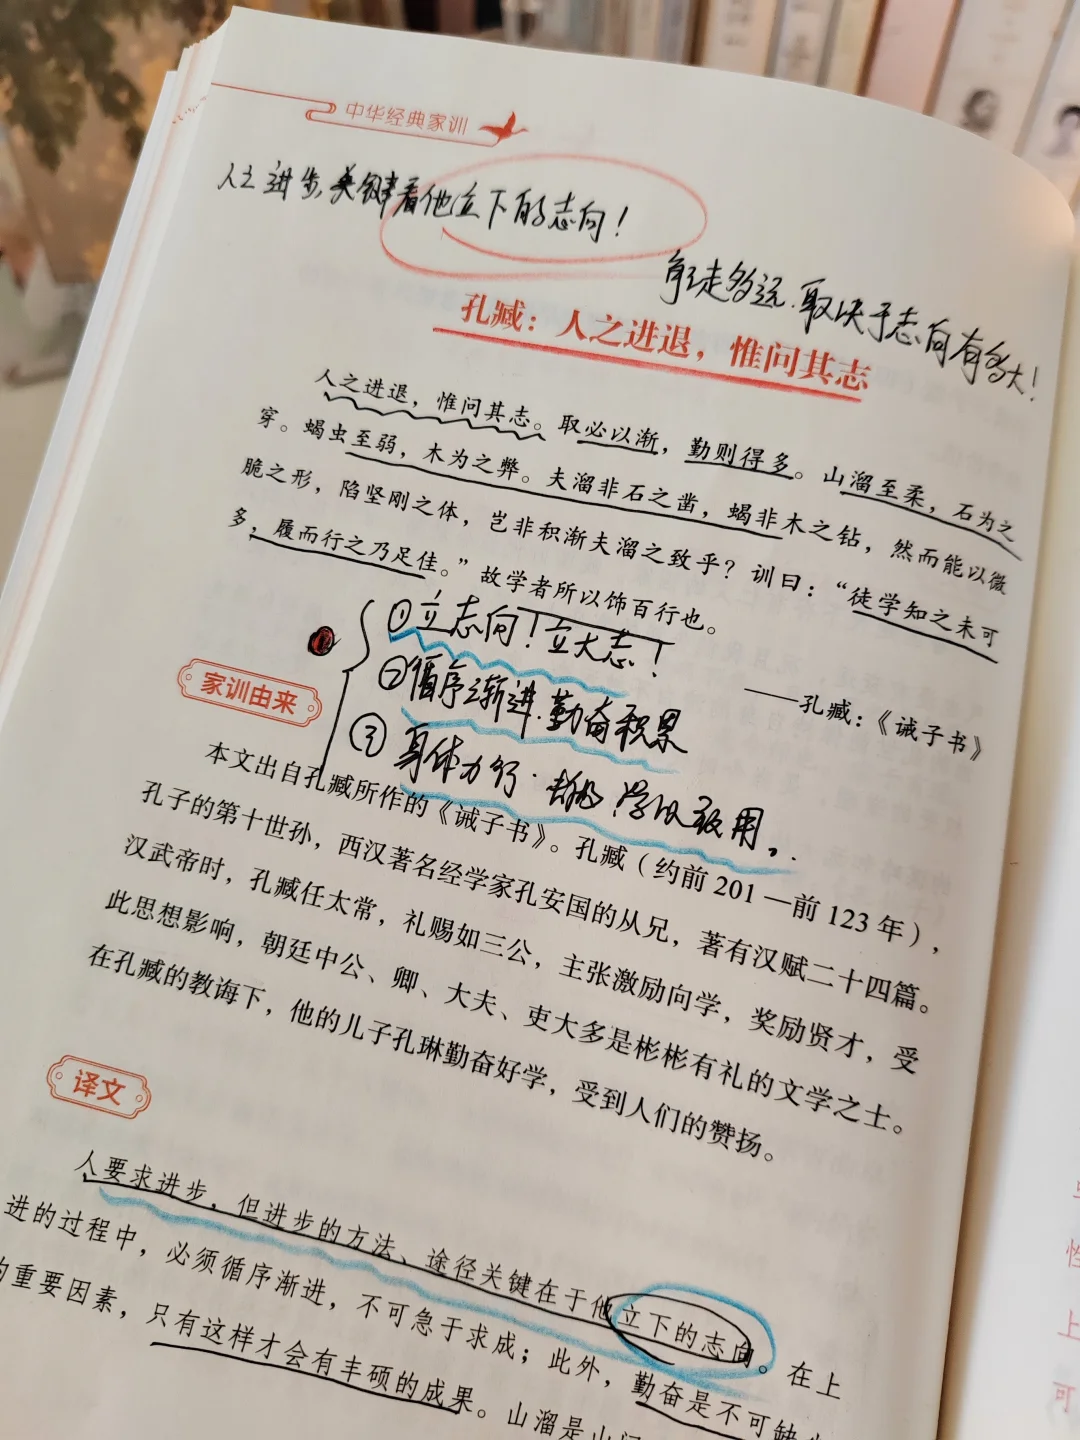 中华经典家训
人之进步,关键看他立下的志向!
能走多远.取决于志向有多大!
孔臧：人之进退，惟问其志
人之进退，惟问其志。取必以渐，勤则得多。山溜至柔，石为之
穿。蝎虫至弱，木为之弊。夫溜非石之凿，蝎非木之钻，然而能以微
脆之形，陷坚刚之体，岂非积渐夫溜之致乎？训曰：“徒学知之未可
多，履而行之乃足佳。”故学者所以饰百行也。
①立志向!立大志!
②循序渐进.勤奋积累
③身体力行.学以致用
——孔臧：《诫子书》
家训由来
本文出自孔臧所作的《诫子书》。孔臧（约前 201 —前 123 年），
孔子的第十世孙，西汉著名经学家孔安国的从兄，著有汉赋二十四篇。
汉武帝时，孔臧任太常，礼赐如三公，主张激励向学，奖励贤才，受
此思想影响，朝廷中公、卿、大夫、吏大多是彬彬有礼的文学之士。
在孔臧的教诲下，他的儿子孔琳勤奋好学，受到人们的赞扬。
译文
人要求进步，但进步的方法、途径关键在于他立下的志向。在上
进的过程中，必须循序渐进，不可急于求成；此外，勤奋是不可缺少
的重要因素，只有这样才会有丰硕的成果。山溜是山
性
上
可